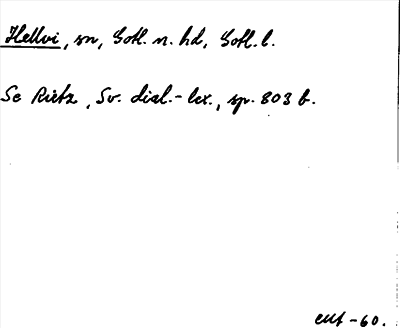 Hellvi, sn, Gotl. n. hd, Gotl. l.
Se Rietz, Sv. dial.-lex., sp. 803 b.
-60.